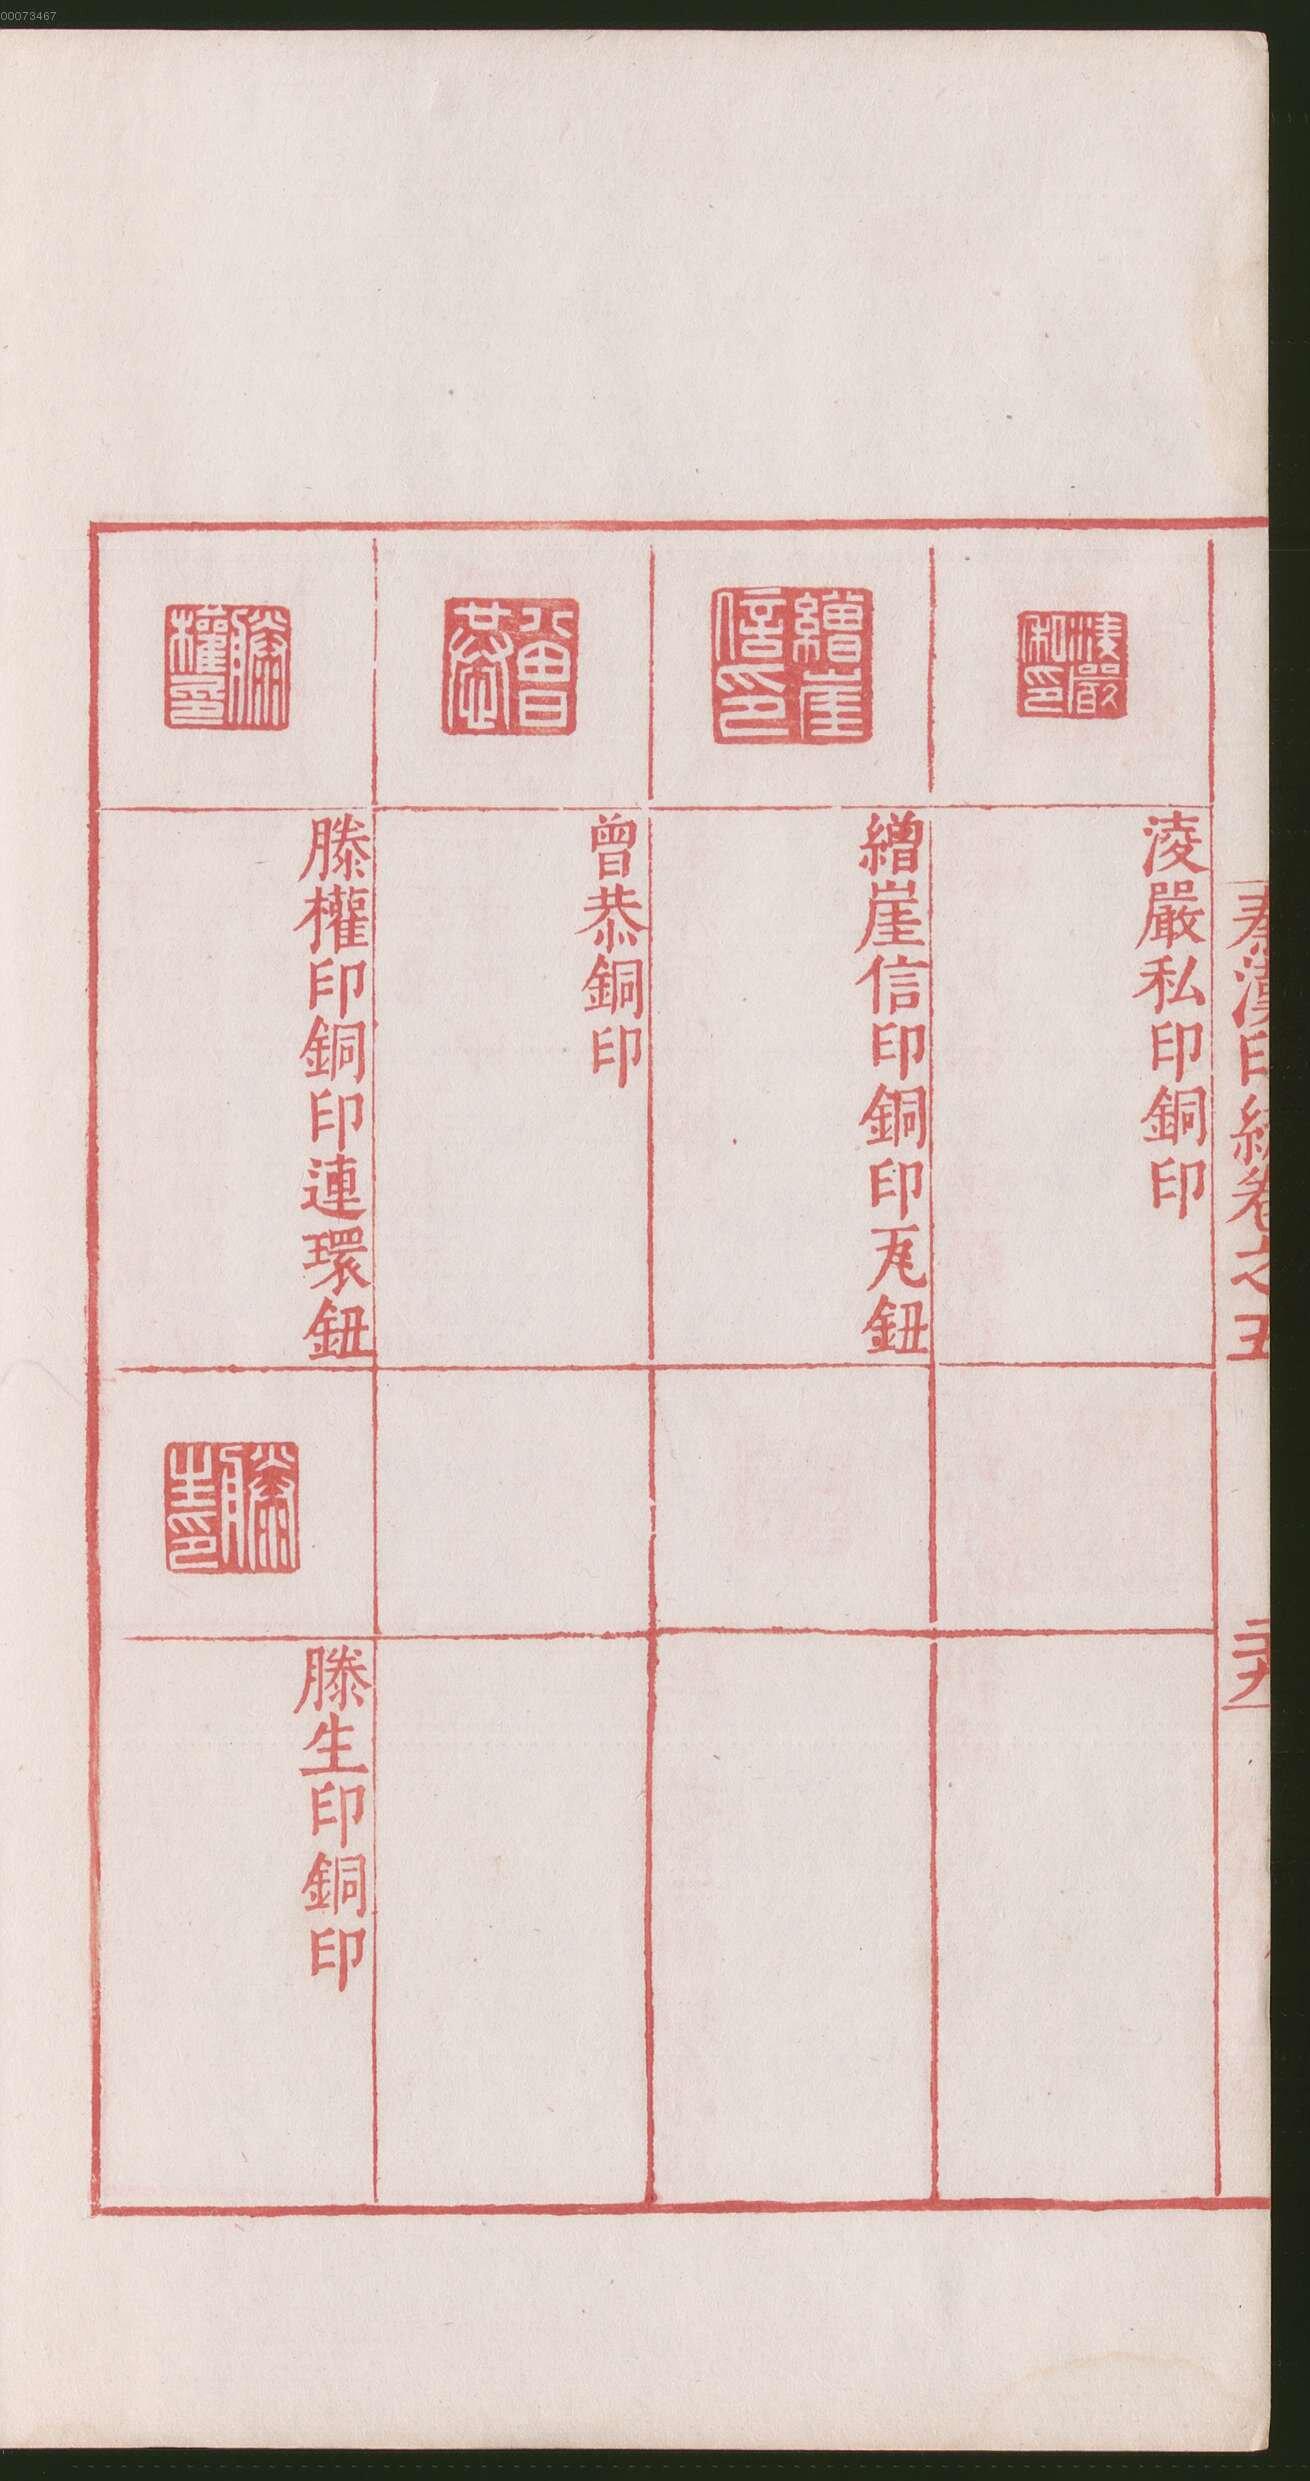 00073467
秦漢印統卷之五
二十九
淩嚴私印
淩嚴私印銅印
繒崖信印
繒崖信印銅印瓦鈕
曾恭
曾恭銅印
滕權印
滕權印銅印連環鈕
滕生印
滕生印銅印